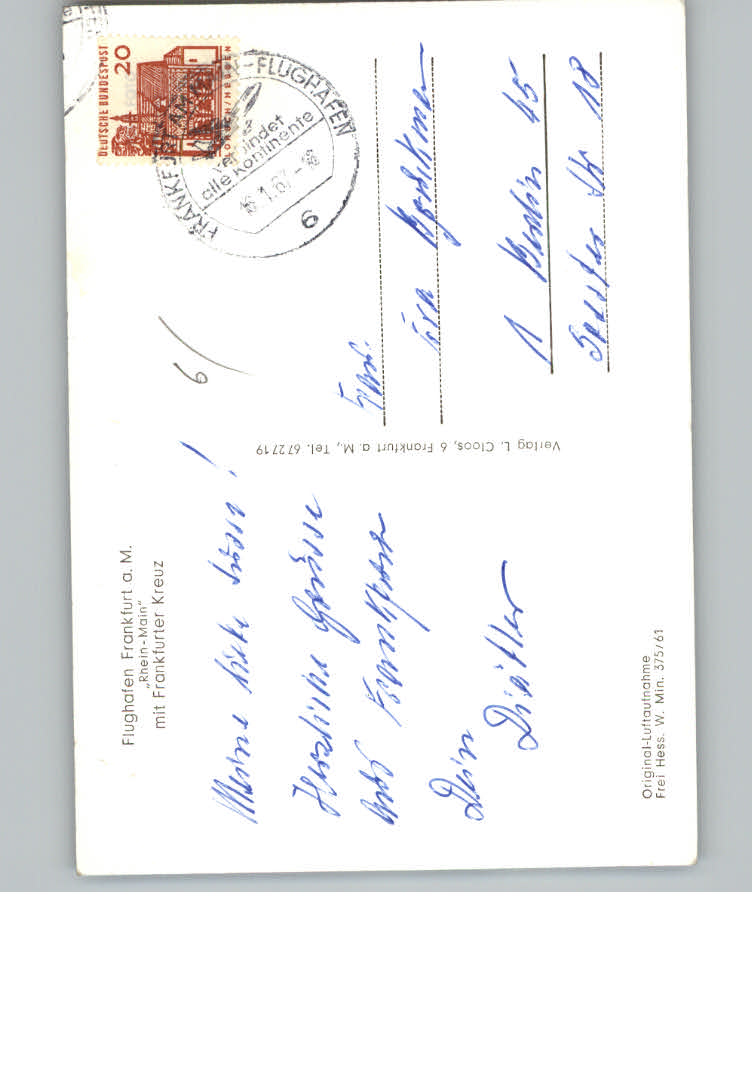 Flughafen Frankfurt a. M.
„Rhein-Main"
mit Frankfurter Kreuz
Meine liebe Süsse!
Herzliche Grüsse
aus Frankfurt
Dein
Original-Luftaufnahme
Frei Hess. W. Min. 375/61
Verlag L. Cloos, 6 Frankfurt a. M., Tel. 672719
DEUTSCHE BUNDESPOST
20
LORSCH/HESSEN
FRANKFURT -FLUGHAFEN
verbindet
alle Kontinente
16.1.67-18
6
6
Frau
1 Berlin 45
Str 18